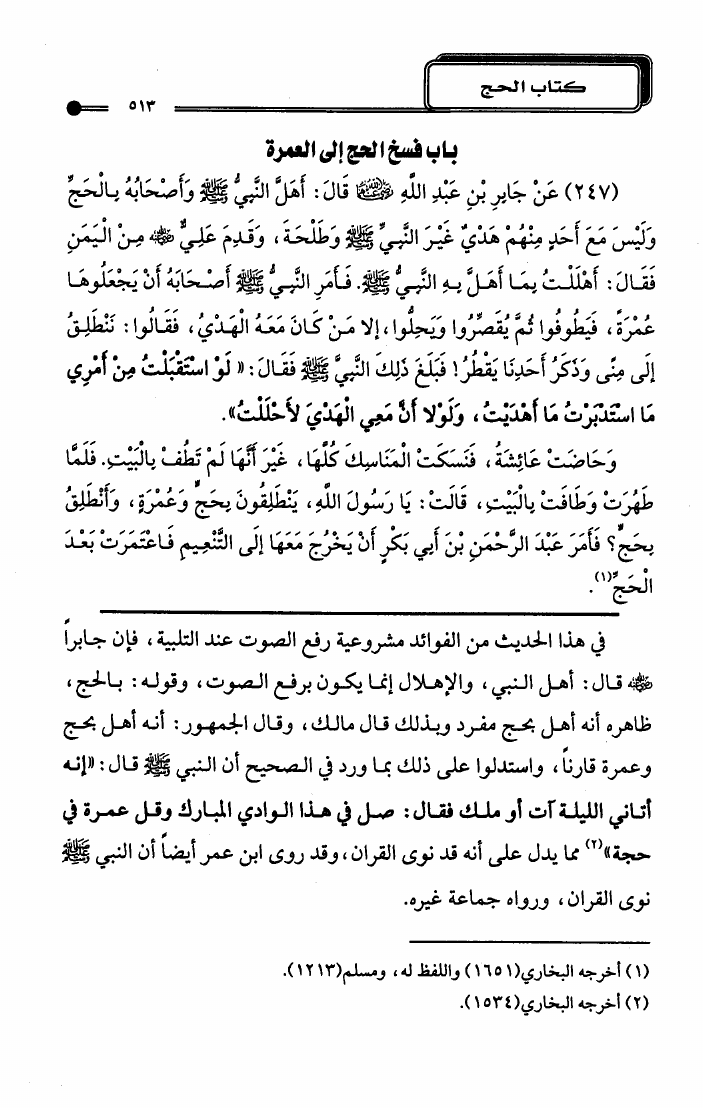 كتاب الحج
٥١٣
باب فسخ الحج إلى العمرة
(٢٤٧) عَنْ جَابِرِ بْنِ عَبْدِ اللَّهِ ﵁ قَالَ: أَهَلَّ النَّبِيُّ ﷺ وَأَصْحَابُهُ بِالْحَجِّ
وَلَيْسَ مَعَ أَحَدٍ مِنْهُمْ هَدْيٌ غَيْرَ النَّبِيِّ ﷺ وَطَلْحَةَ، وَقَدِمَ عَلِيٌّ ﵁ مِنْ الْيَمَنِ
فَقَالَ: أَهْلَلْتُ بِمَا أَهَلَّ بِهِ النَّبِيُّ ﷺ. فَأَمَرَ النَّبِيُّ ﷺ أَصْحَابَهُ أَنْ يَجْعَلُوهَا
عُمْرَةً، فَيَطُوفُوا ثُمَّ يُقَصِّرُوا وَيَحِلُّوا، إلا مَنْ كَانَ مَعَهُ الْهَدْيُ، فَقَالُوا: نَنْطَلِقُ
إلَى مِنًى وَذَكَرُ أَحَدِنَا يَقْطُرُ! فَبَلَغَ ذَلِكَ النَّبِيَّ ﷺ فَقَالَ: «لَوْ اسْتَقْبَلْتُ مِنْ أَمْرِي
مَا اسْتَدْبَرْتُ مَا أَهْدَيْتُ، وَلَوْلا أَنَّ مَعِي الْهَدْيَ لأَحْلَلْتُ».
وَحَاضَتْ عَائِشَةُ، فَنَسَكَتْ الْمَنَاسِكَ كُلَّهَا، غَيْرَ أَنَّهَا لَمْ تَطُفْ بِالْبَيْتِ. فَلَمَّا
طَهُرَتْ وَطَافَتْ بِالْبَيْتِ، قَالَتْ: يَا رَسُولَ اللَّهِ، يَنْطَلِقُونَ بِحَجٍّ وَعُمْرَةٍ، وَأَنْطَلِقُ
بِحَجٍّ؟ فَأَمَرَ عَبْدَ الرَّحْمَنِ بْنَ أَبِي بَكْرٍ أَنْ يَخْرُجَ مَعَهَا إلَى التَّنْعِيمِ فَاعْتَمَرَتْ بَعْدَ
الْحَجِّ(١).
في هذا الحديث من الفوائد مشروعية رفع الصوت عند التلبية، فإن جابراً
﵁ قال: أهل النبي، والإهلال إنما يكون برفع الصوت، وقوله: بالحج،
ظاهره أنه أهل بحج مفرد وبذلك قال مالك، وقال الجمهور: أنه أهل بحج
وعمرة قارناً، واستدلوا على ذلك بما ورد في الصحيح أن النبي ﷺ قال: «إنه
أتاني الليلة آت أو ملك فقال: صل في هذا الوادي المبارك وقل عمرة في
حجة»(٢) مما يدل على أنه قد نوى القران، وقد روى ابن عمر أيضاً أن النبي ﷺ
نوى القران، ورواه جماعة غيره.
(١) أخرجه البخاري(١٦٥١) واللفظ له، ومسلم(١٢١٣).
(٢) أخرجه البخاري(١٥٣٤).